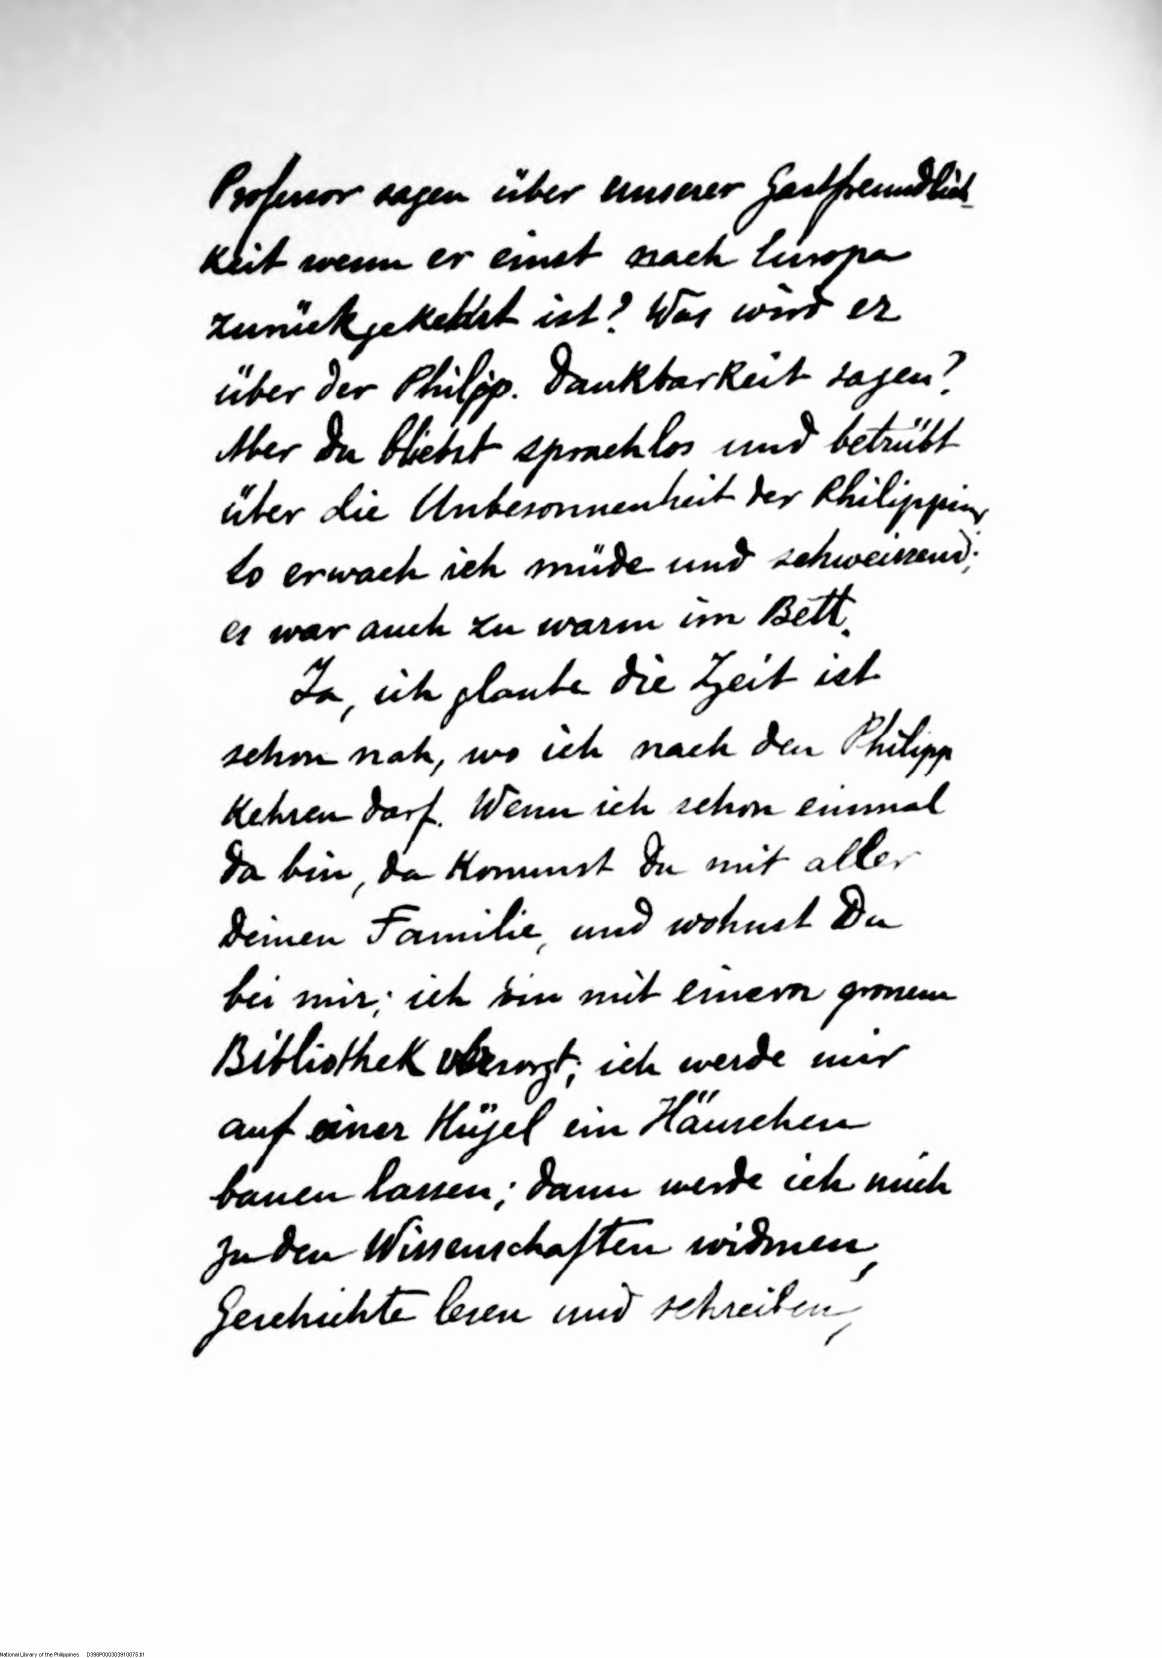 Professor sagen über unserer Gastfreundlich-
keit wenn er einst nach Europa
zurückgekehrt ist? Was wird er
über der Philipp. Dankbarkeit sagen?
Aber Du bliebst sprachlos und betrübt
über die Unbesonnenheit der Philippiner
So erwach ich müde und schweissend;
es war auch zu warm im Bett.
Ja, ich glaube die Zeit ist
schon nah, wo ich nach den Philipp
kehren darf. Wenn ich schon einmal
da bin, da kommst Du mit aller
Deinen Familie, und wohnst Du
bei mir; ich bin mit einem grossem
Bibliothek versorgt; ich werde mir
auf einer Hügel ein Häuschen
bauen lassen; dann werde ich mich
zu den Wissenschaften widmen,
Geschichte lesen und schreiben,
National Library of the Philippines